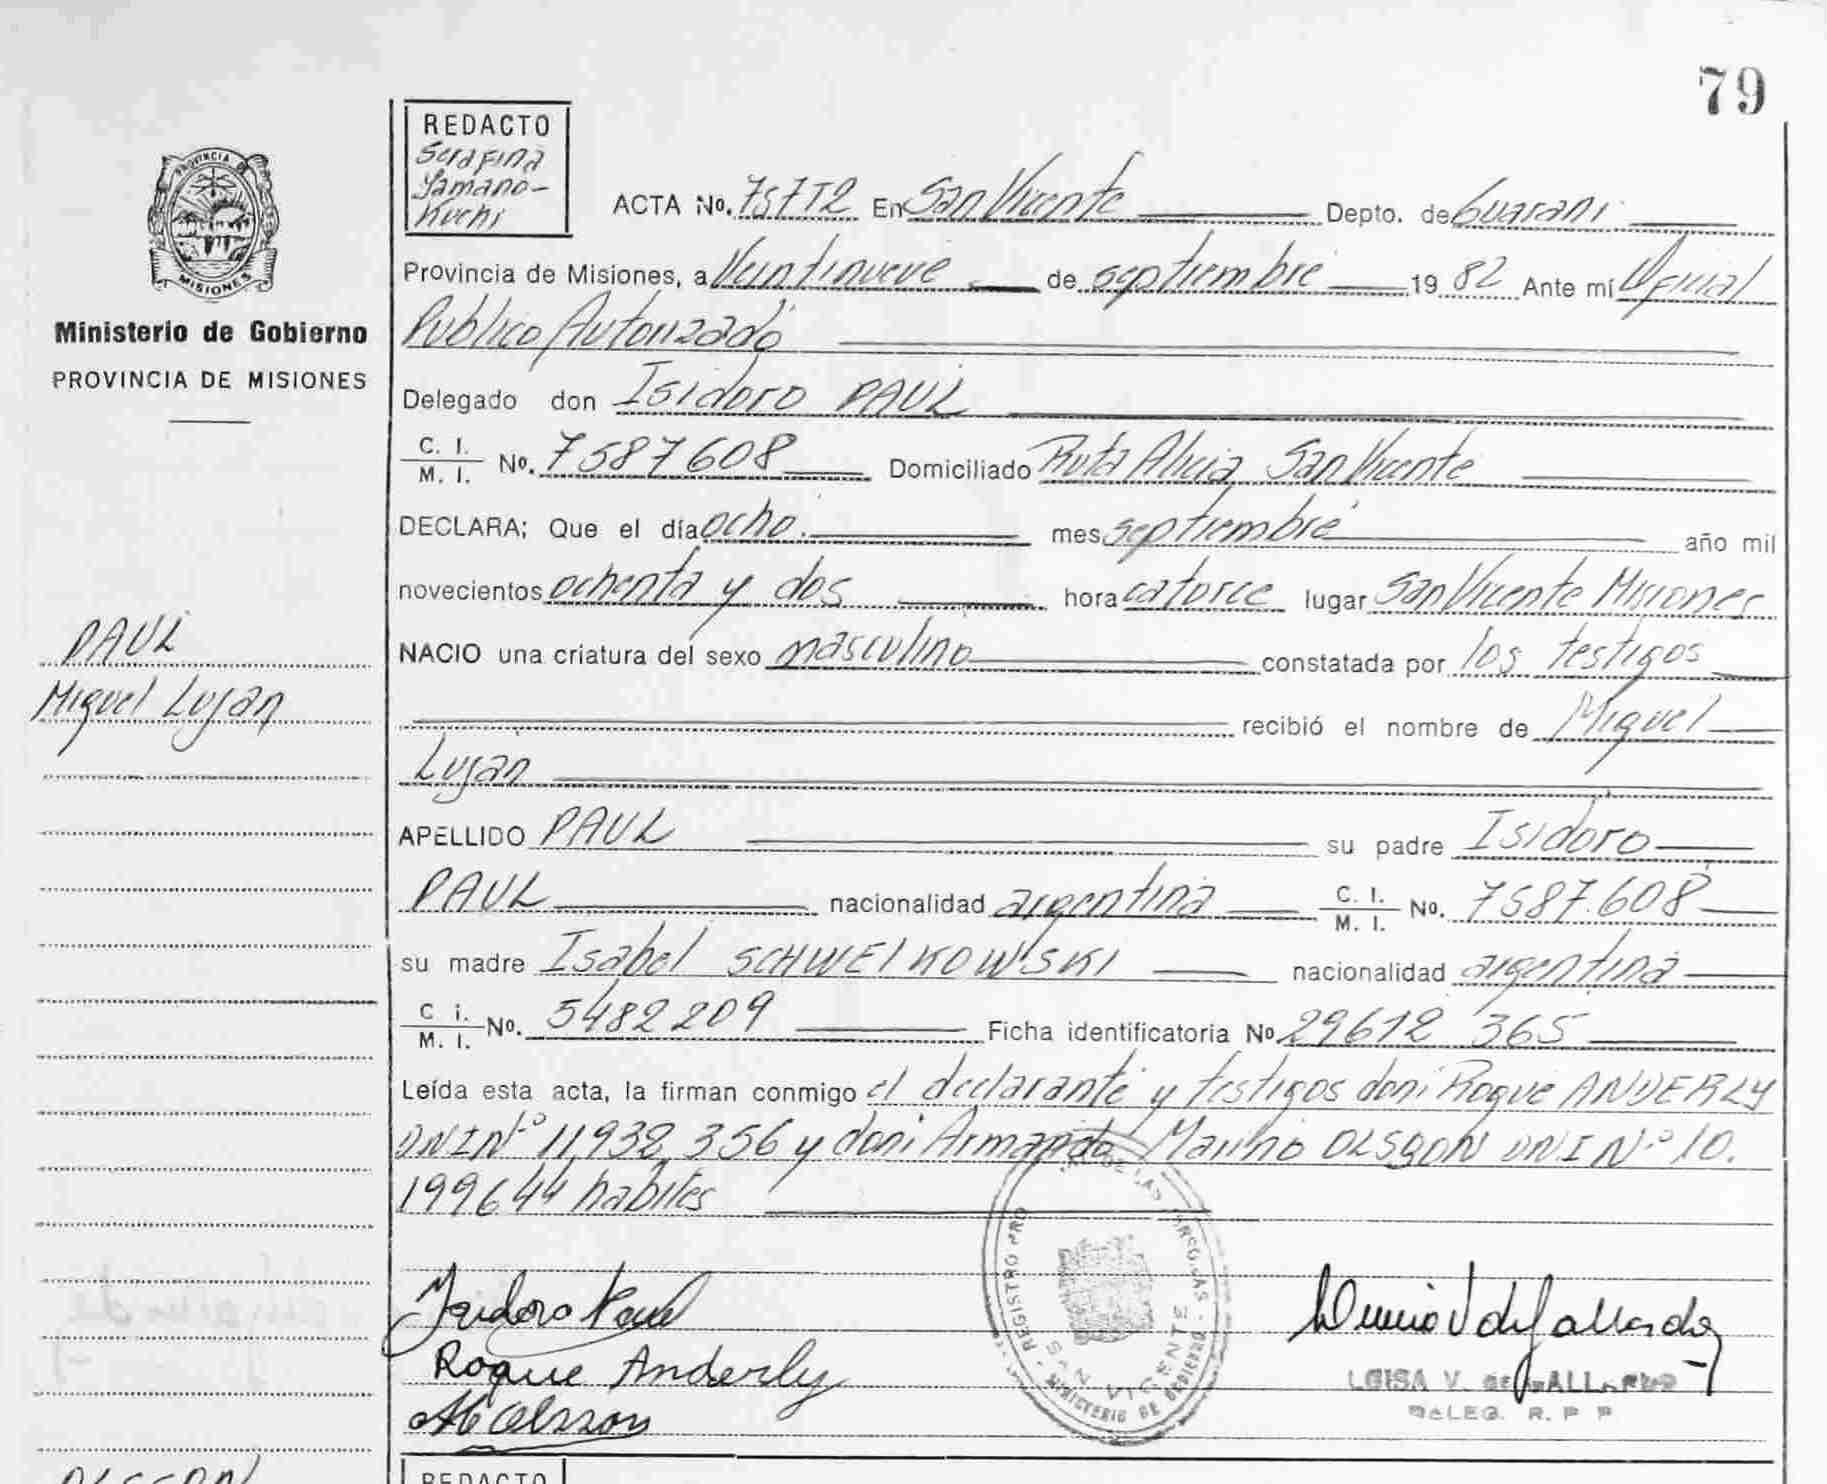 79
REDACTO
Serafina
Yamano-
Kuchi
ACTA No. 757T2 En San Vicente Depto. de Guarani
Provincia de Misiones, a Veintinueve de septiembre 19 82 Ante mí Oficial
Publico Autorizado
Delegado don Isidoro PAUL
C. I.
M. I. No. 7587608 Domiciliado Ruta Alicia San Vicente
DECLARA; Que el día ocho. mes septiembre año mil
novecientos ochenta y dos hora catorce lugar San Vicente Misiones
NACIO una criatura del sexo masculino constatada por los testigos
recibió el nombre de Miguel
Lujan
APELLIDO PAUL su padre Isidoro
PAUL nacionalidad argentina C. I. M. I. No. 7587.608
su madre Isabel SCHWEIKOWSKI nacionalidad argentina
C i.
M. I. No. 5482209 Ficha identificatoria No 29612 365
Leída esta acta, la firman conmigo el declarante y testigos don: Roque ANDERLY
DNI Nº 11,932,356 y don: Armando Marino OLSSON DNI Nº 10.
199644 habiles
Isidoro Paul
Roque Anderly
Olsson
LUISA V. de GALLARDO
DELEG. R. P. P.
PROVINCIA DE
MISIONES
Ministerio de Gobierno
PROVINCIA DE MISIONES
PAUL
Miguel Lujan
REGISTRO PRO DE LAS PERSONAS
MINISTERIO DE GOBIERNO
SAN VICENTE
OLSSON
REDACTO